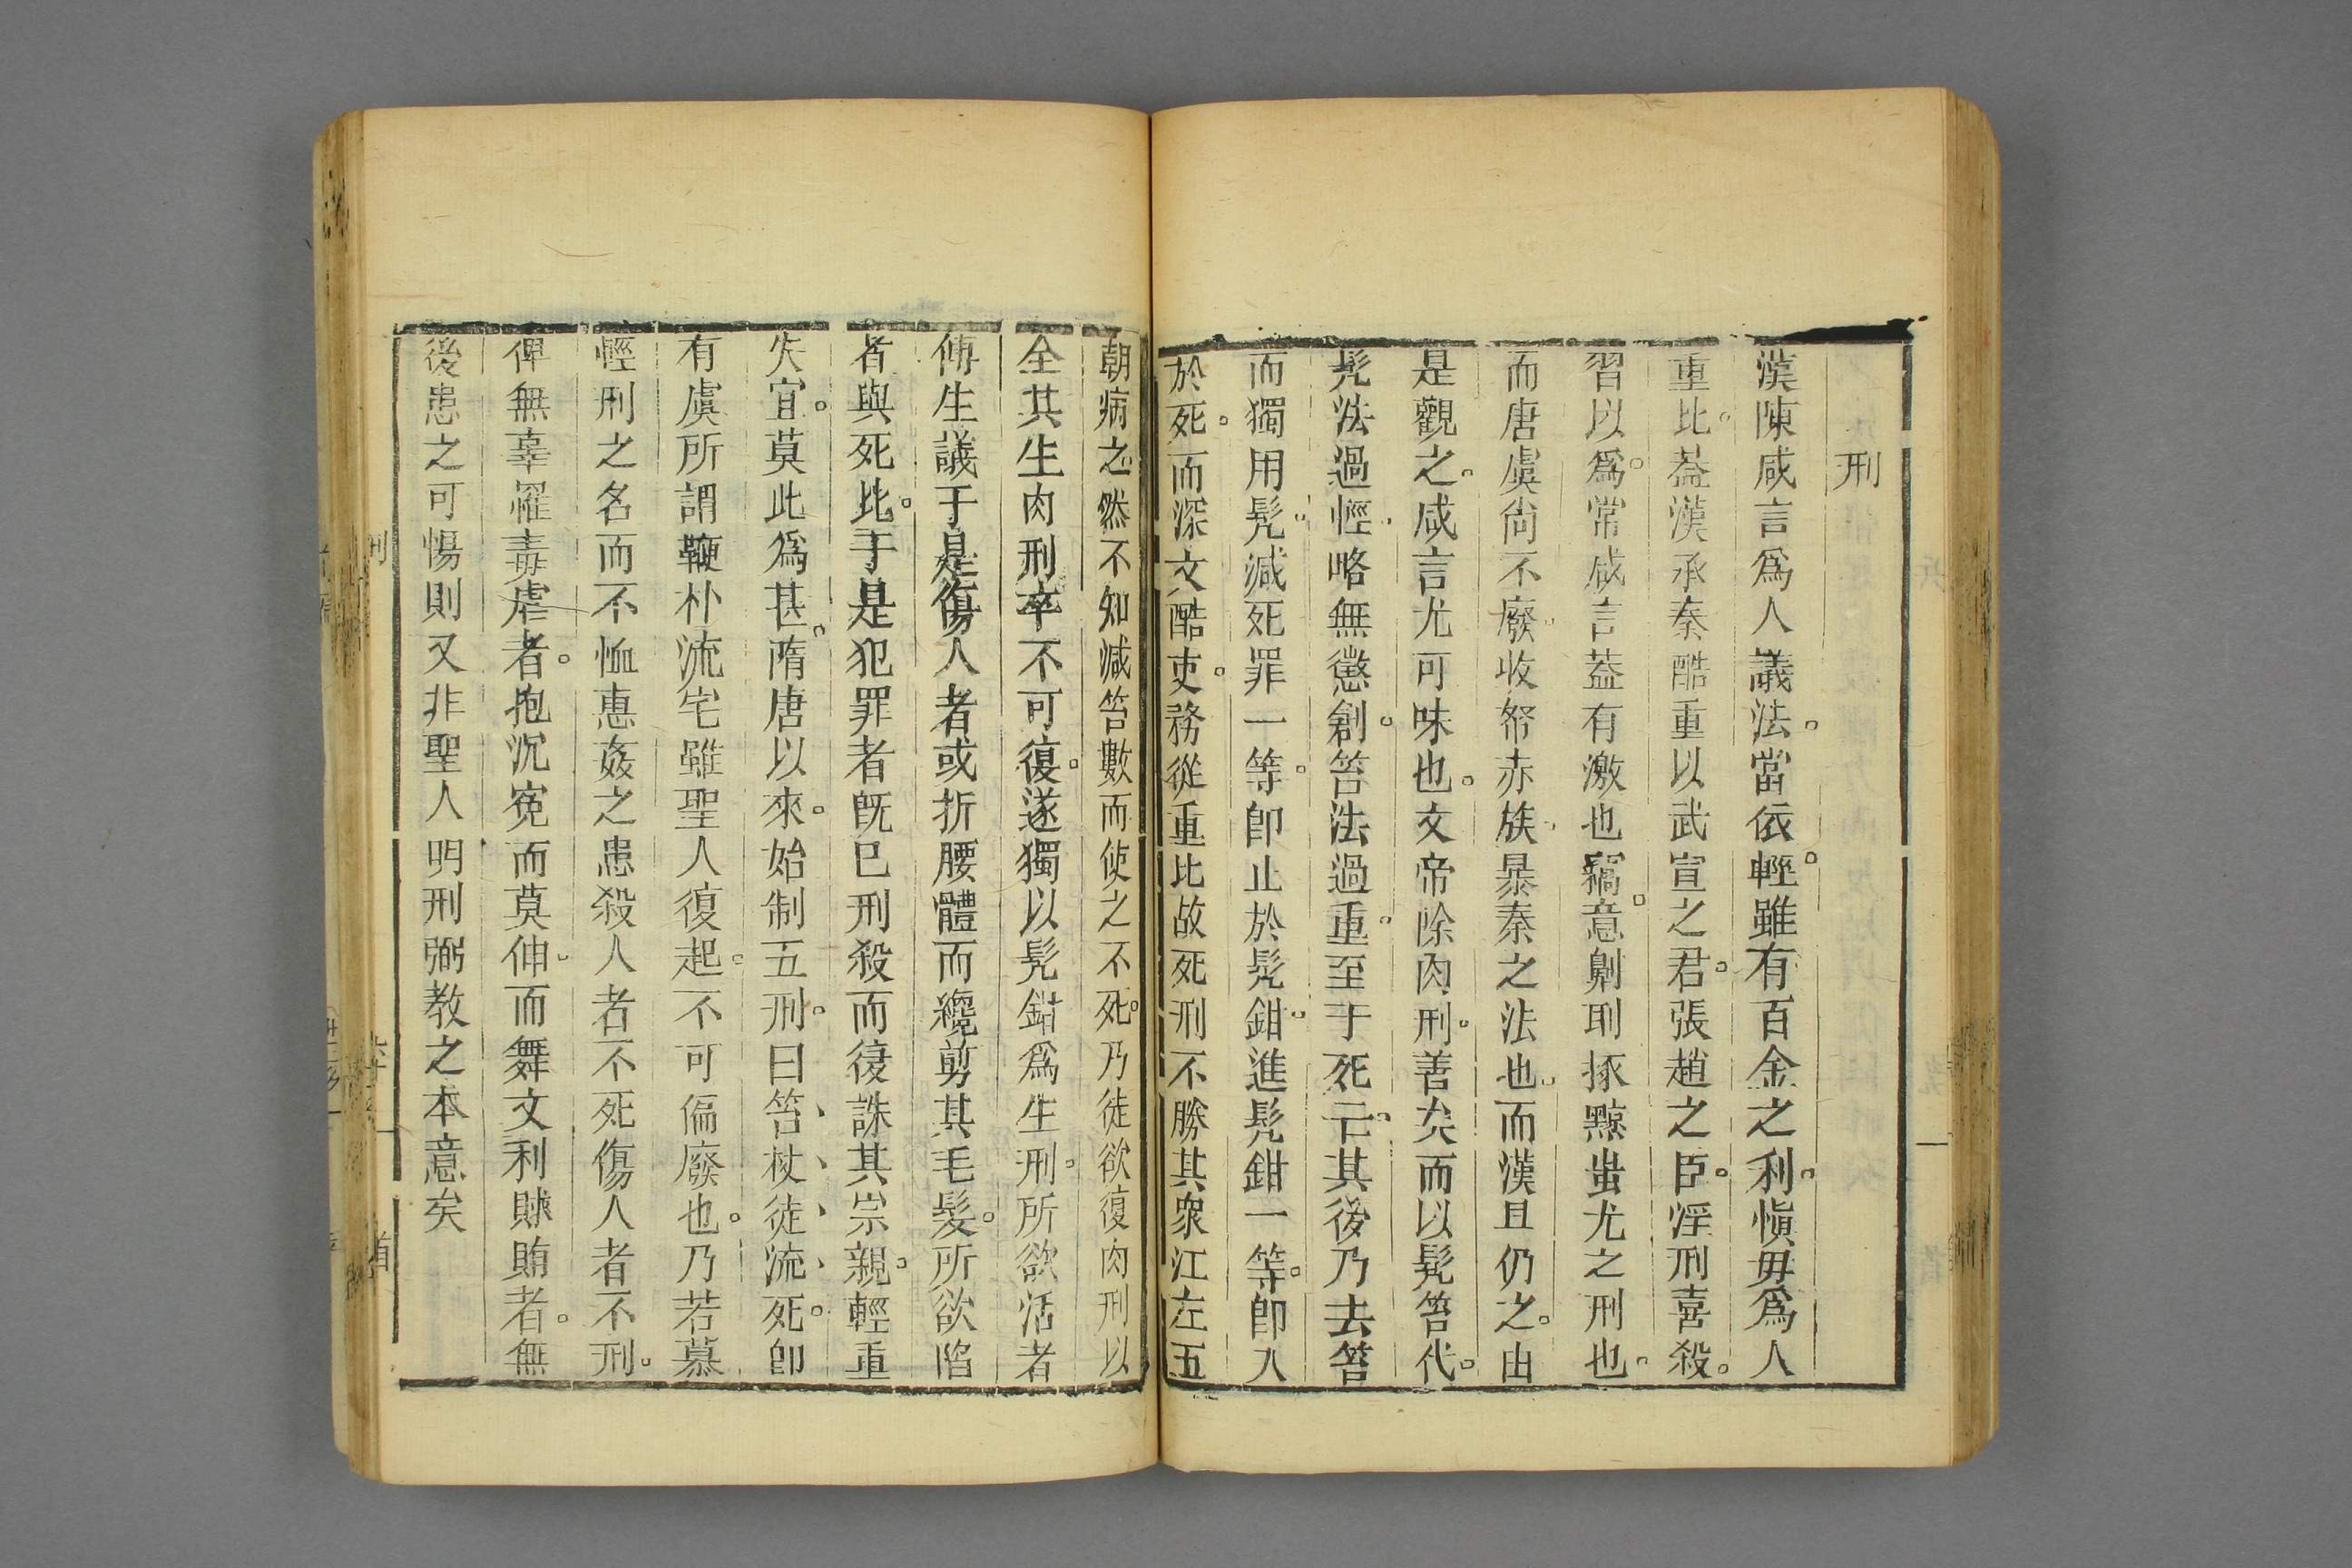 刑
漢陳咸言爲人議法。當依輕。雖有百金之利。慎毋爲人
重比。葢漢承秦酷重以武宣之君。張趙之臣。淫刑喜殺。
習以爲。常咸言葢有激也竊。意劓刵椓黥蚩尤之刑也。
而唐虞尙不廢。收帑赤族。暴秦之法也。而漢且仍之。由
是觀之。咸言尤可味也。文帝除肉刑。善矣而以髡笞代。
髡法過輕。略無懲創。笞法過重。至于死亡。其後乃去笞
而獨用髡。減死罪一等。卽止於髡鉗。進髡鉗一等。卽入
於死。而深文酷吏。務從重比故死刑不勝其衆江左五
朝病之然不知減笞數而使之不死。乃徒欲復肉刑以
全其生肉刑卒不可復。遂獨以髡鉗爲生刑。所欲活者
傅生議于是傷人者或折腰體而纔剪其毛髮。所欲陷
者與死比。于是犯罪者旣已刑殺而復誅其宗親。輕重
失宜。莫此爲甚。隋唐以來。始制五刑。曰笞、杖、徒、流、死。卽
有虞所謂鞭朴流宅雖聖人復起。不可偏廢也。乃若慕
輕刑之名而不恤惠姦之患殺人者不死傷人者不刑。
俾無辜罹毒虐者。抱沉寃而莫伸。而舞文利賕賄者。無
後患之可惕則又非聖人明刑弼教之本意矣